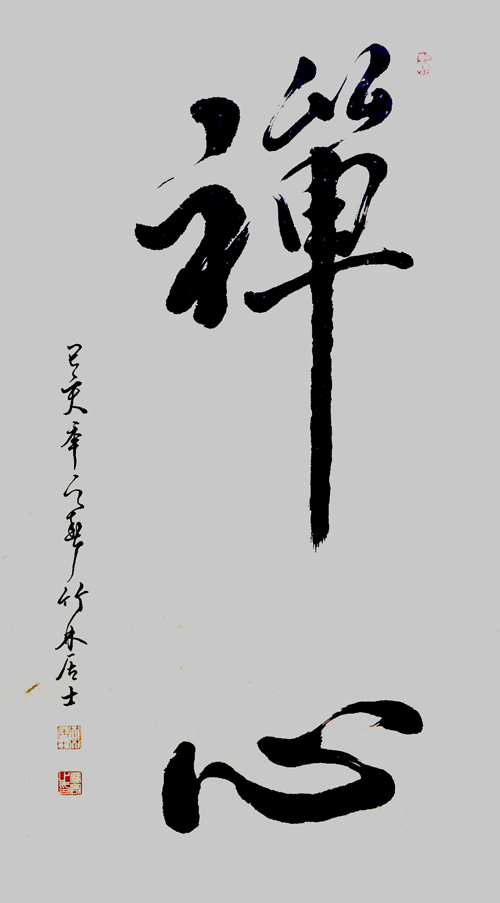 禪心
己亥年之春竹林居士